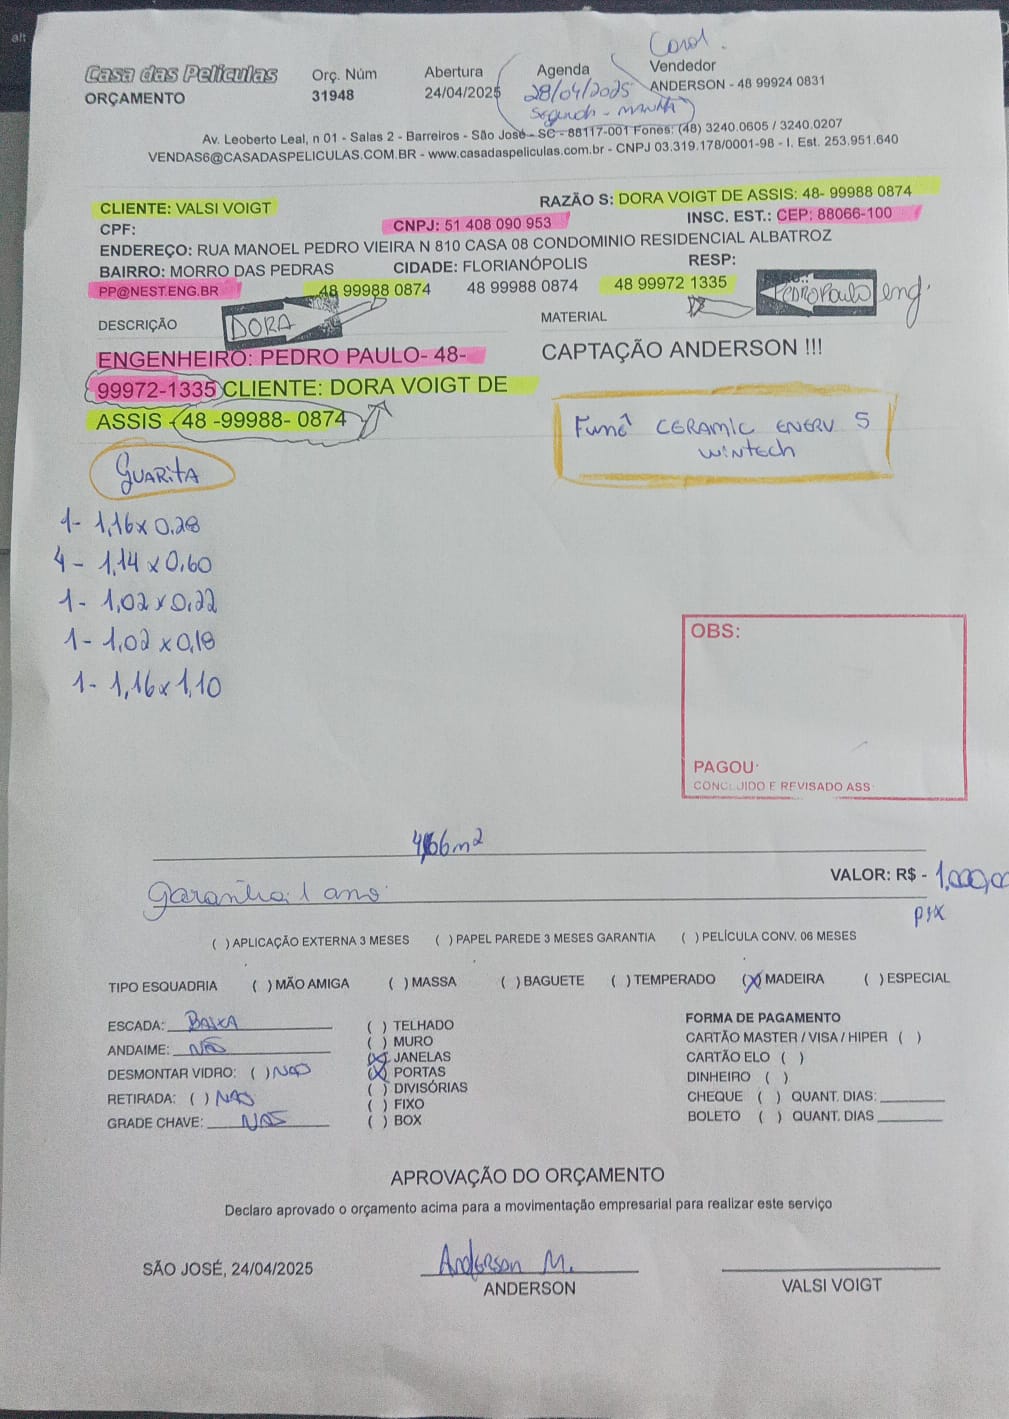 alt
Carol.
Casa das Películas
ORÇAMENTO
Orç. Núm
31948
Abertura
24/04/2025
Agenda
28/04/2025
Segunda - manhã
Vendedor
ANDERSON - 48 99924 0831
Av. Leoberto Leal, n 01 - Salas 2 - Barreiros - São José - SC - 88117-001 Fones: (48) 3240.0605 / 3240.0207
VENDAS6@CASADASPELICULAS.COM.BR - www.casadaspeliculas.com.br - CNPJ 03.319.178/0001-98 - I. Est. 253.951.640
CLIENTE: VALSI VOIGT
RAZÃO S: DORA VOIGT DE ASSIS: 48- 99988 0874
CPF:
CNPJ: 51 408 090 953
INSC. EST.: CEP: 88066-100
ENDEREÇO: RUA MANOEL PEDRO VIEIRA N 810 CASA 08 CONDOMINIO RESIDENCIAL ALBATROZ
BAIRRO: MORRO DAS PEDRAS
CIDADE: FLORIANÓPOLIS
RESP:
PP@NEST.ENG.BR
48 99988 0874
48 99988 0874
48 99972 1335
PEDRO PAULO eng.
DESCRIÇÃO
DORA
MATERIAL
ENGENHEIRO: PEDRO PAULO- 48-
99972-1335 CLIENTE: DORA VOIGT DE
ASSIS - 48 -99988- 0874
CAPTAÇÃO ANDERSON !!!
Fumê CERAMIC ENERV 5
WINTECH
GUARITA
1- 1,16x0,28
4- 1,14x0,60
1- 1,02x0,22
1- 1,02x0,18
1- 1,16x1,10
OBS:
PAGOU:
CONCLUIDO E REVISADO ASS
4,66m²
VALOR: R$ - 1.000,00
Garantia: 1 ano
pix
( ) APLICAÇÃO EXTERNA 3 MESES ( ) PAPEL PAREDE 3 MESES GARANTIA ( ) PELÍCULA CONV. 06 MESES
TIPO ESQUADRIA ( ) MÃO AMIGA ( ) MASSA ( ) BAGUETE ( ) TEMPERADO (X) MADEIRA ( ) ESPECIAL
ESCADA: BAIXA
ANDAIME: NÃO
DESMONTAR VIDRO: ( ) NÃO
RETIRADA: ( ) NÃO
GRADE CHAVE: NÃO
( ) TELHADO
( ) MURO
(X) JANELAS
(X) PORTAS
( ) DIVISÓRIAS
( ) FIXO
( ) BOX
FORMA DE PAGAMENTO
CARTÃO MASTER / VISA / HIPER ( )
CARTÃO ELO ( )
DINHEIRO ( )
CHEQUE ( ) QUANT. DIAS:
BOLETO ( ) QUANT. DIAS
APROVAÇÃO DO ORÇAMENTO
Declaro aprovado o orçamento acima para a movimentação empresarial para realizar este serviço
SÃO JOSÉ, 24/04/2025
Anderson M.
ANDERSON
VALSI VOIGT